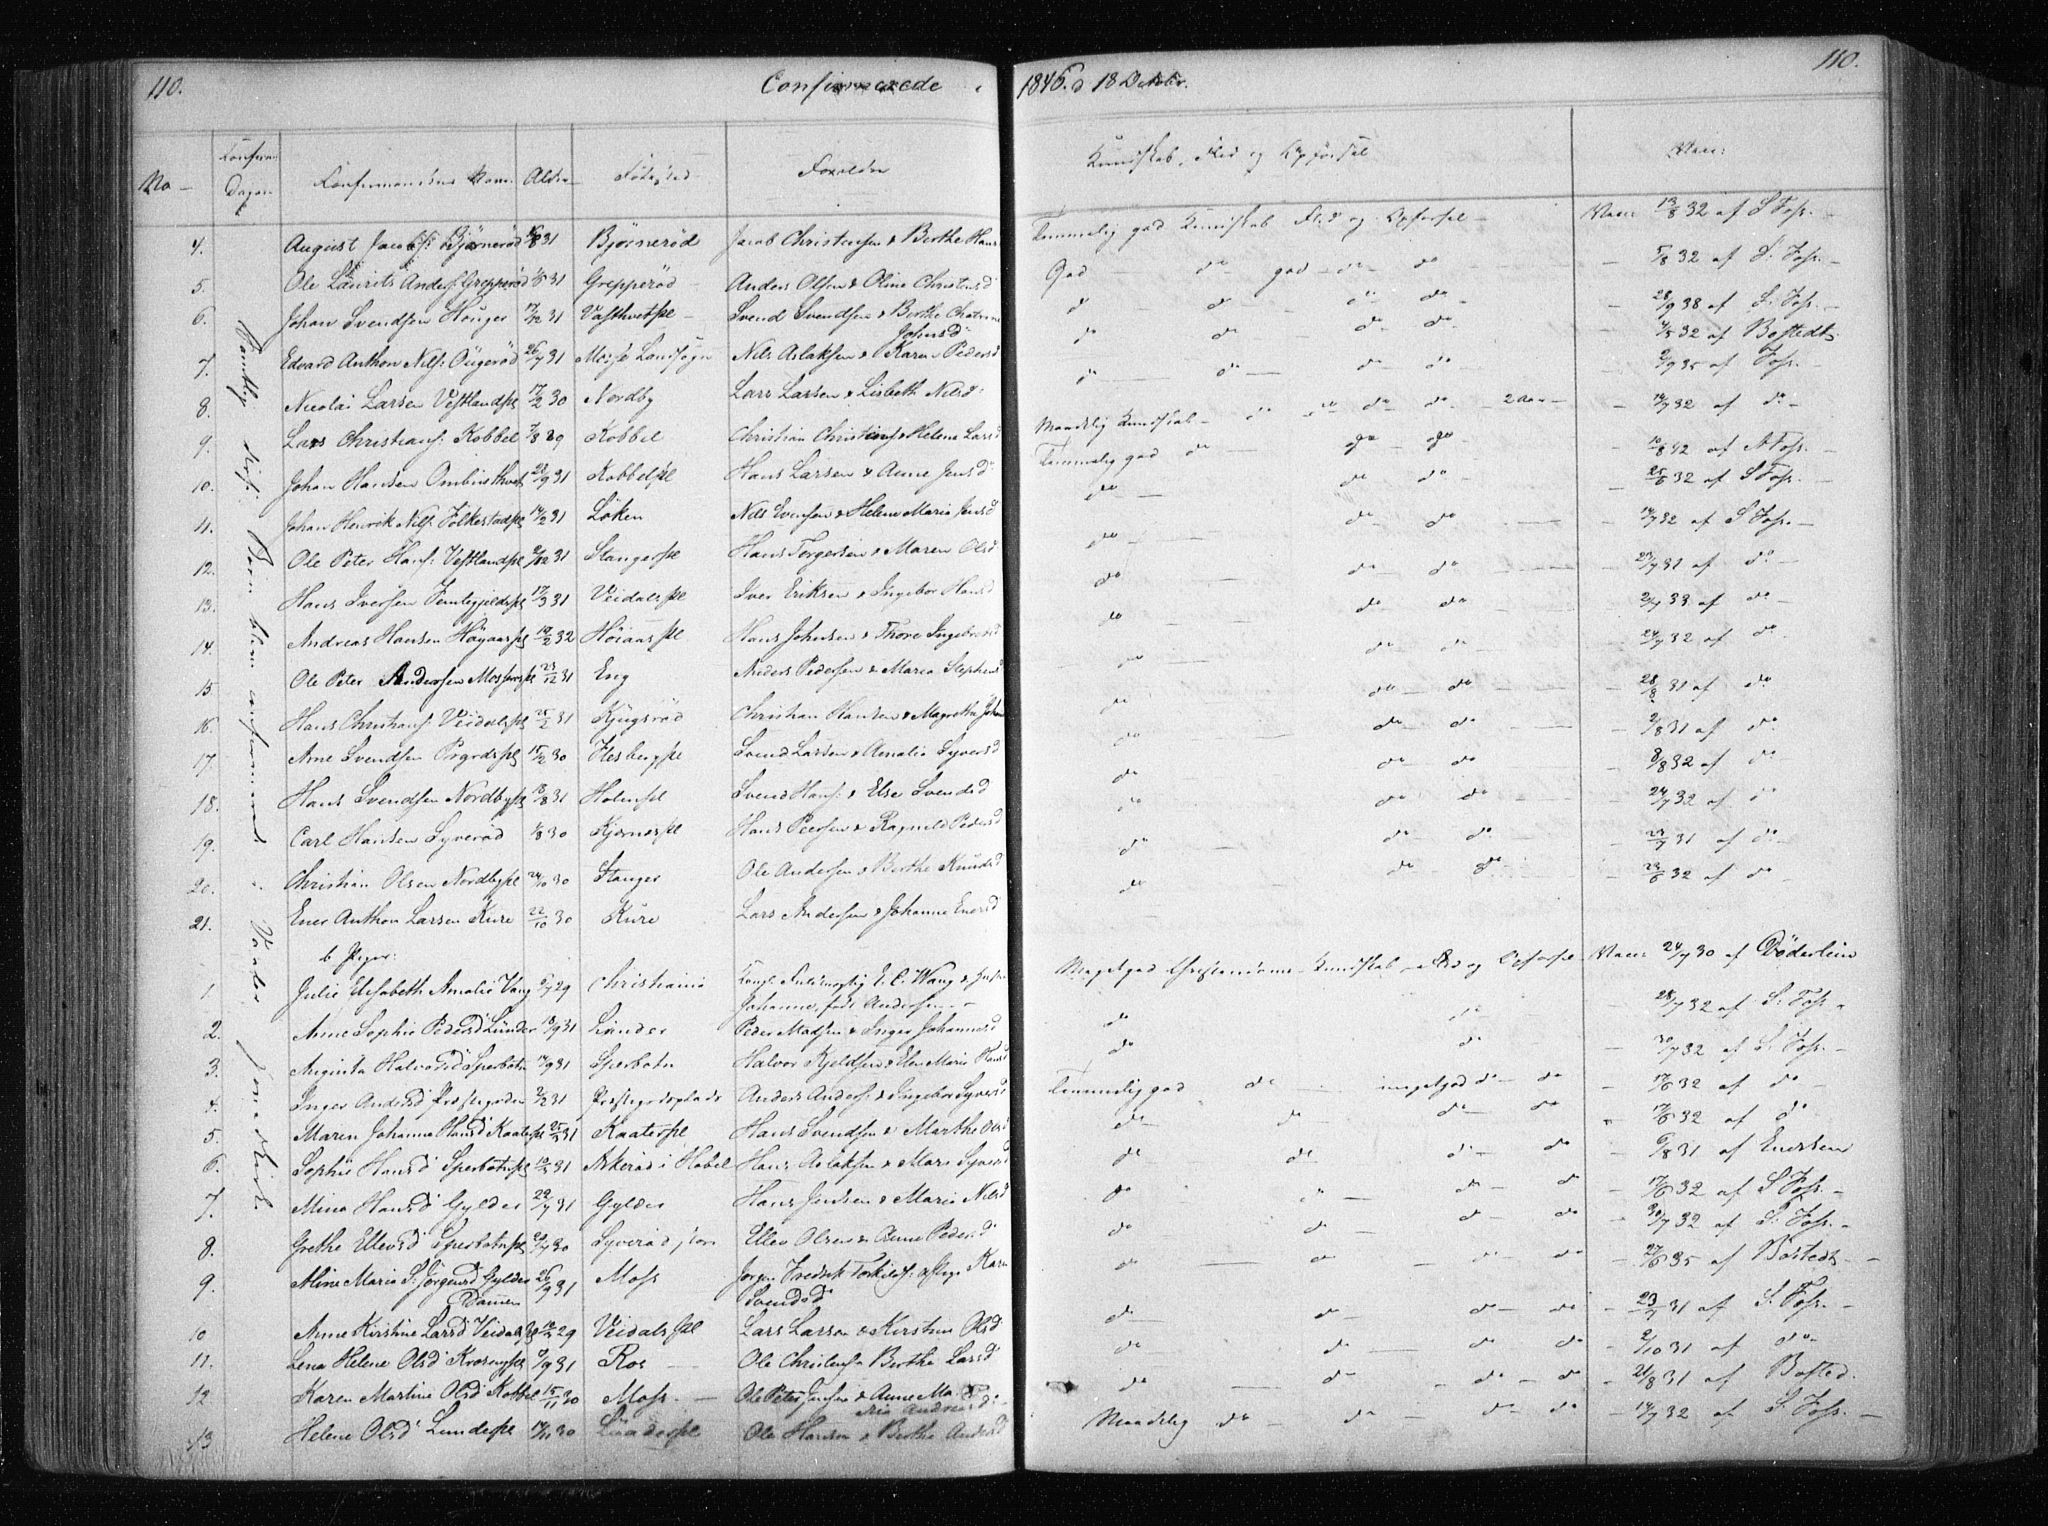 110.
Confirmerede
1846. d 18 October.
110.
No
Confirm: Dagen
Confirmandens Navn
Alder
Fødested
Forældre
Kundskab, Flid og Opførsel
Vacc:
4. August Jacobs: Bjørnerød 31 Bjørnerød Jacob Christensen & Berthe Hans Temmelig god Kundskab Flid og Opførsel Vacc: 13/8 32 af S Foss.
5. Ole Laurits Anders: Grepperød 31 Grepperød Anders Olsen & Oline Christensd God do god do do 5/8 32 af S: Foss.
6. Johan Svendsen Houger 17/12 31 Vasthvetpl Svend Svendsen & Berthe Chatrine Johnsd do do do do 28/9 38 af S: Foss.
7. Edvard Anthon Nils: Ougerød 26/7 31 Moss Landsogn Nils Aslaksen & Karen Pedersd do do do do 32 af Bostedt
8. Nicolai Larsen Vestlandspl 17/2 30 Nordby Lars Larsen & Lisbeth Nilsd: do do do do 35 af Foss.
9. Lars Christians: Kobbel 7/8 29 Kobbel Christian Christians & Helene Larsd Maadelig Kundskab do do do 14/7 32 af do
10. Johan Hansen Ombusthvet 31 Kobbelpl Hans Larsen & Anne Jensd Temmelig god do do do 10/8 42 af N Foss.
11. Johan Henrik Nils: Folkestadpl 14/2 31 Løken Nils Evensen & Helene Maria Jensd do do do 25/6 32 af S Foss.
12. Ole Peter Hans: Vestlandspl 31 Stangerpl Hans Torgersen & Maren Olsd do do do 14/7 32 af S Foss.
13. Hans Iversen 17/3 31 Veidalspl Iver Eriksen & Ingebor Hansd do do do 23/7 31 af do
14. Andreas Hansen Høyaaspl 10/2 32 Høiaaspl Hans Johnsen & Thore Ingebretsd do do do 2/7 33 af do
15 Ole Peter Andersen Mosserpl 23/12 31 Eng Anders Pedersen & Maria Stephensd do do do 24/7 32 af do
16. Hans Christians: Veidalspl 25/2 31 Kjugsrød Christian Hansen & Magrethe Johan do do do 28/8 31 af do
17 Arne Svendsen 15/2 30 Svend Larsen & Amalie Syversd do do do 2/8 31 af do
18. Hans Svendsen Nordbypl 18/8 31 Holenpl Svend Hans: & Else Svendsd do do do 8/8 32 af do
19. Carl Hansen Syverød 30 Kjærnespl Hans Peersen & Ragnild Pedersd do do do 24/7 32 af do
20. Christian Olsen Nordbypl 24/10 30 Stanger Ole Andersen & Berthe Knudsd do do do 23/7 31 af do
21. Ener Anthon Larsen Kure 22/10 30 Kure Lars Andersen & Johanne Enersd do do do 23/6 32 af do
b Piger:
1. Julie Elisabeth Amalie Vang 29 Christiania Kongl: Fuldmægtig E. C. Wang & Hustru Johanne, født Andersen Meget god Christendoms-Kundskab, Flid og Opførsel Vacc: 24/7 30 af Døderlein
2. Anne Sophie Pedersd Lunder 18/9 31 Lunder Peder Madsen & Inger Johannesd do do 28/7 32 af S: Foss.
3. Augusta Halvorsd Sperbotn 14/9 31 Sperbotn Halvor Kjeldsen & Elen Maria Hansd do do 30/7 32 af S: Foss.
4. Inger Andersd Præstegorden 31 Præstegordsplads Anders Anders: & Ingebor Syversd Temmelig god do meget god do do 17/6 32 af do
5. Maren Johanna Hansd Kaaterpl 31 Kaaterpl Hans Svendsen & Marthe Olsd do do do do 17/6 32 af do
6. Sophie Hansd Sperbotnpl 31 Askerød i Hobel Hans Aslaksen & Mari Syversd do do do do 6/8 31 af Enersen
7. Mina Hansd Gylder 22/7 31 Gylder Hans Jensen & Maria Nilsd do do do do 17/6 32 af S Foss.
8. Grethe Ellevsd Sperbotnpl 30 Syverød Ellev Olsen & Anne Pedersd do do do do 30/7 32 af S: Foss.
9. Aline Maria S: Jørgensd Gylder Dammen 26/9 31 Moss Jørgen Fredrik Torkilds: & Karn Svendsd do do do do 27/6 35 af Bostedt
10 Anne Kirstine Larsd Veidalspl 29 Veidalspl Lars Larsen & Kirstine Olsd do do do do 23/7 31 af S: Foss.
11. Lena Helene Olsd 31 Ros Ole Christens: Berthe Larsd do do do do 2/10 31 af do
12 Karen Martine Olsd Kobbel 15/11 30 Moss. Ole Peter Jensen & Anne Maria Andreasd: do do do do 21/8 31 af Bosted.
13 Helene Olsd Lunderpl 30 Lunderpl Ole Hansen & Berthe Andersd Maadelig do do do do 14/7 32 af S: Foss.
Samtlige disse Børn bleve confirmerede i Vaaler Kirke